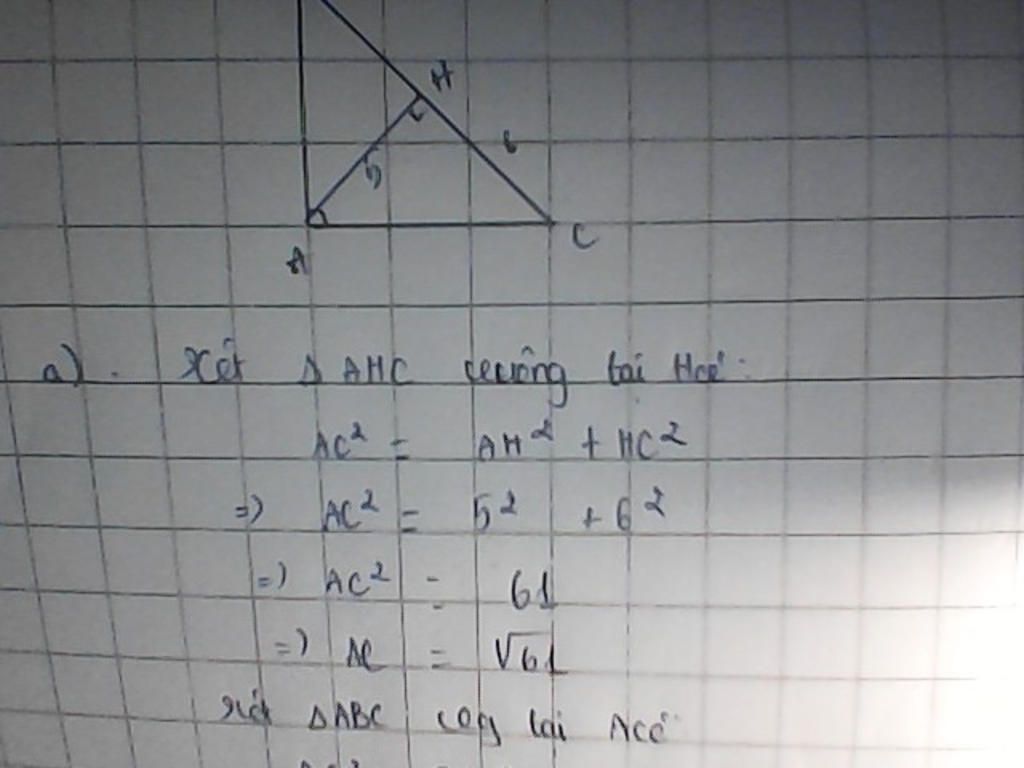 H
6
5
A
C
a). Xét Δ AHC vuông tại H có:
AC² = AH² + HC²
=> AC² = 5² + 6²
=> AC² = 61
=> AC = √61
Xét ΔABC vuông tại A có